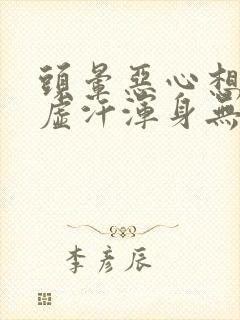 頭暈惡心想
虛汗渾身無
李彥辰